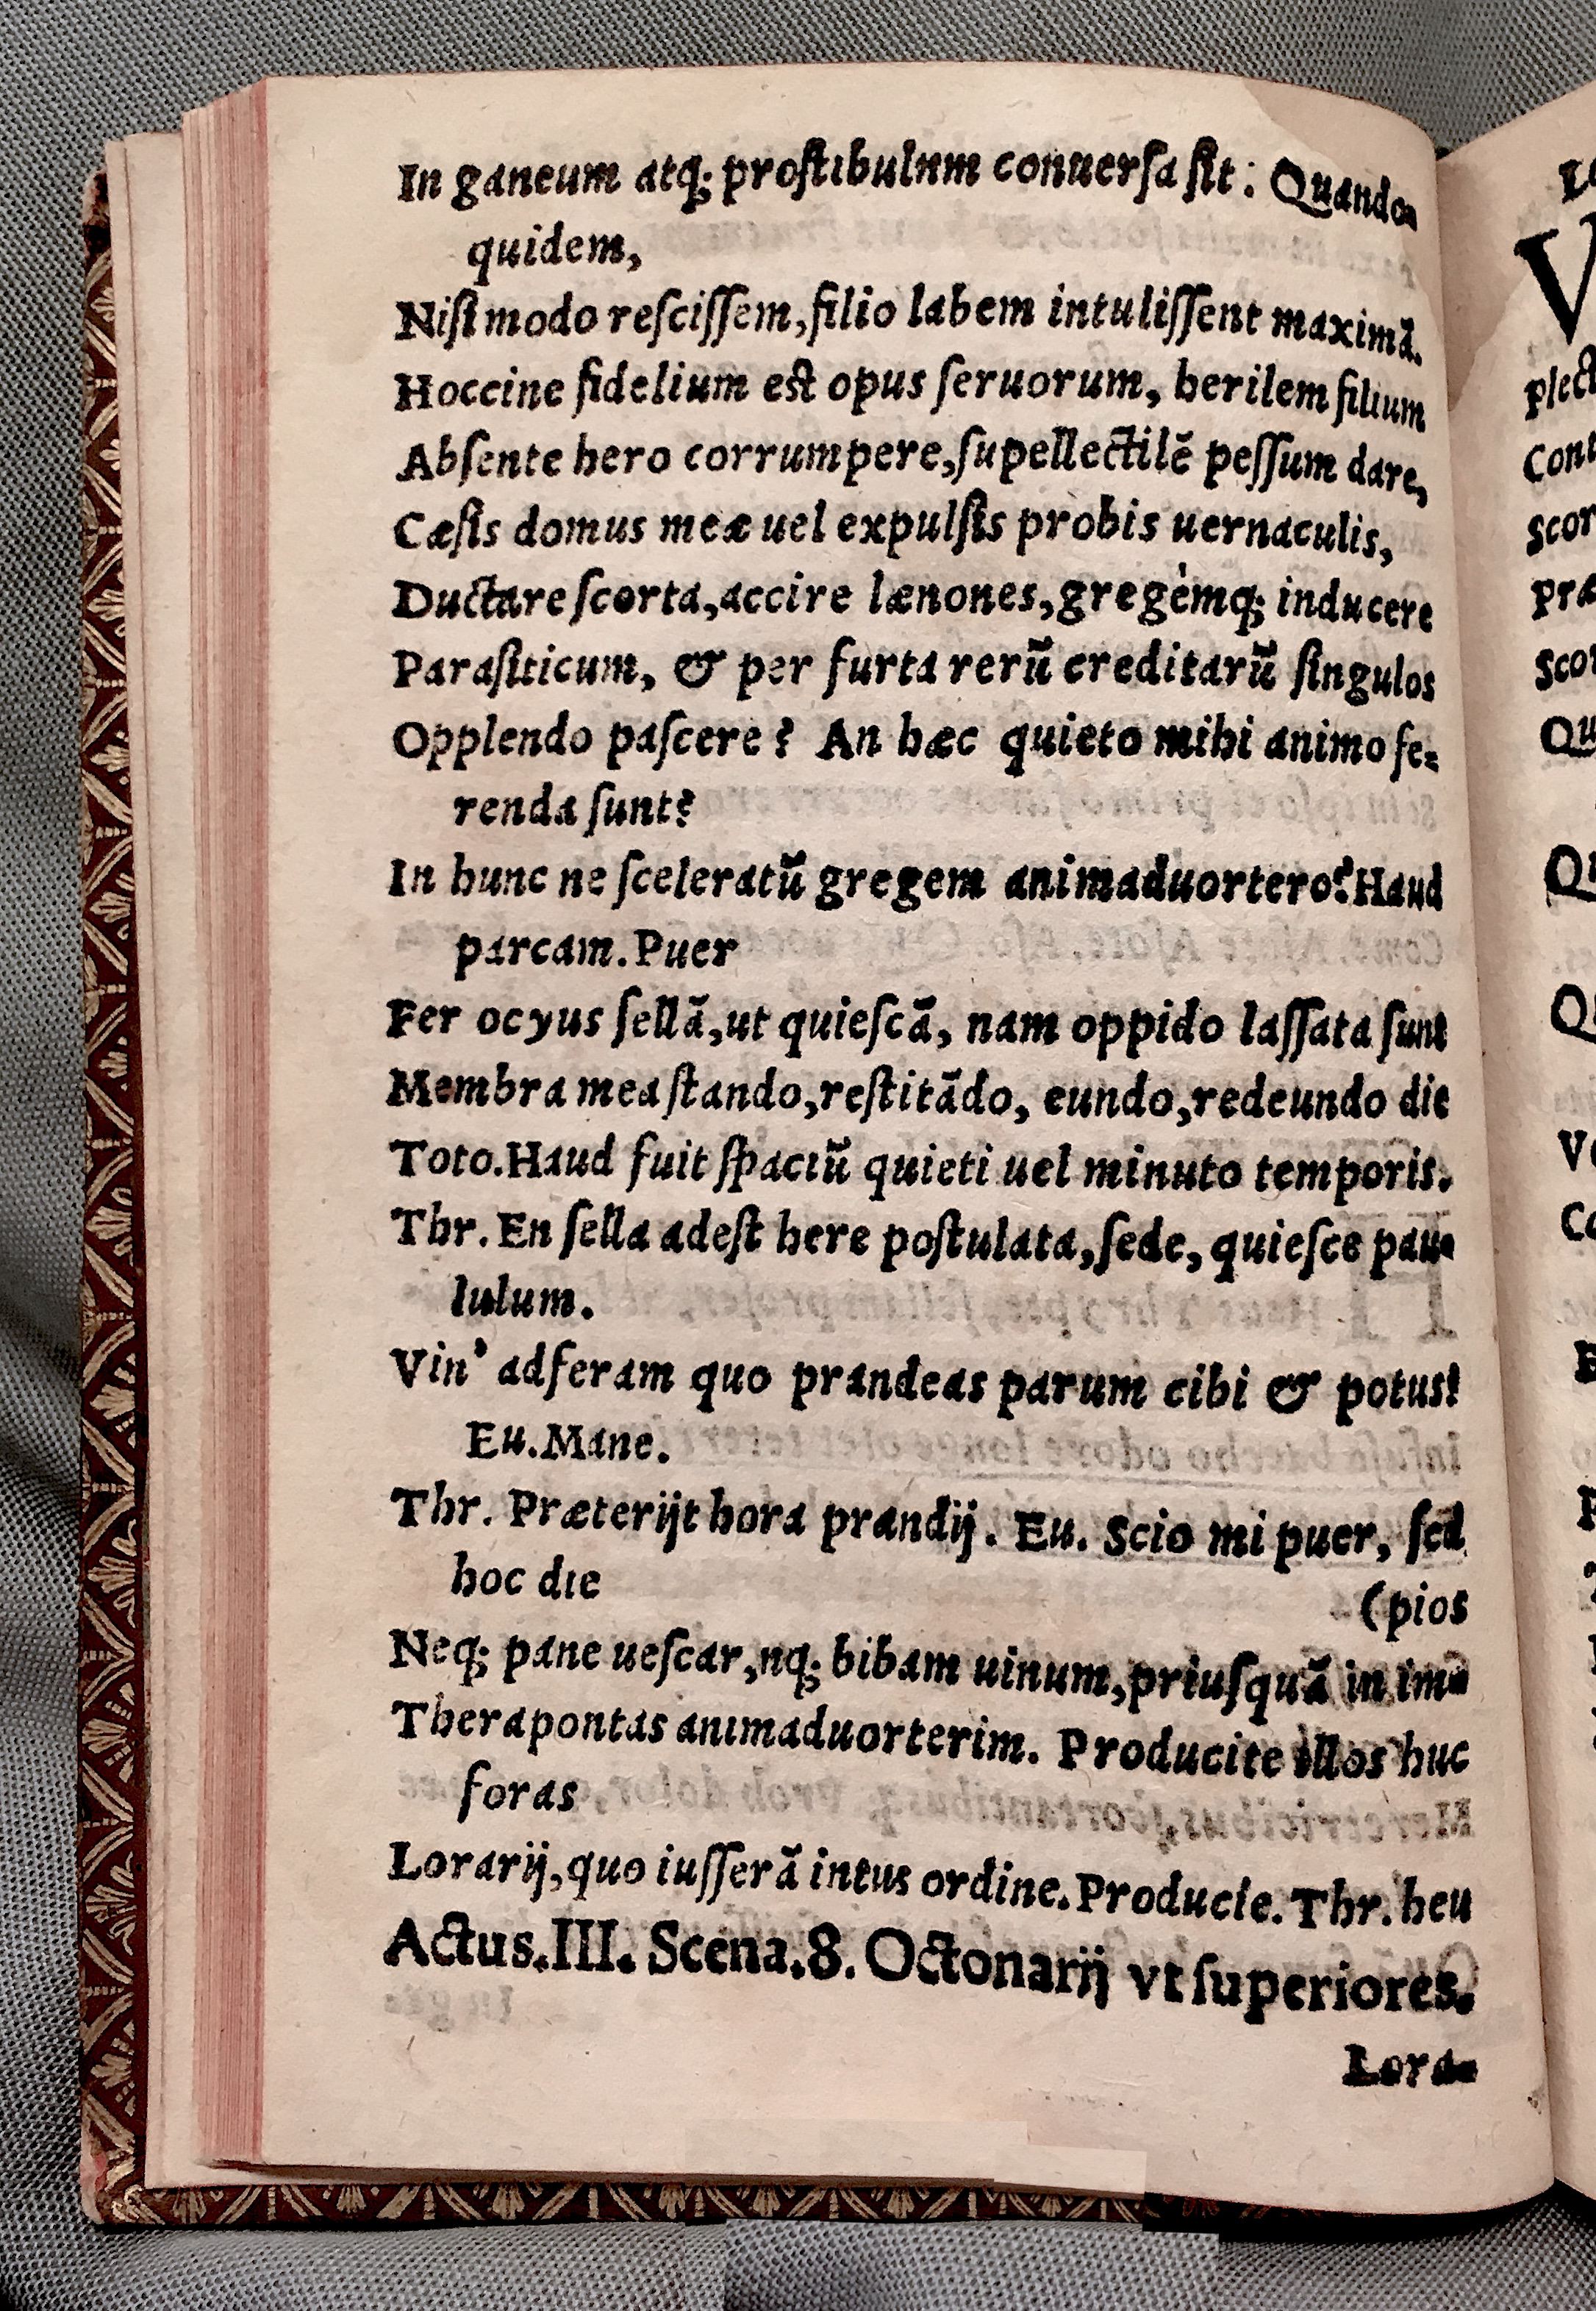 In ganeum atq; proſtibulnm conuerſa ſit : Quando-
quidem,
Niſi modo reſciſſem, filio labem intuliſſent maximā.
Hoccine fidelium eſt opus ſeruorum, herilem filium
Abſente hero corrumpere, ſupellectilē peſſum dare,
Cæſis domus meæ uel expulſis probis uernaculis,
Ductare ſcorta, accire lænones, gregèmq; inducere
Paraſiticum, & per furta rerū creditarū ſingulos
Opplendo paſcere? An hæc quieto mihi animo fe-
renda ſunt?
In hunc ne ſceleratū gregem animaduortero? Haud
parcam. Puer
Fer ocyus ſellā, ut quieſcā, nam oppido laſſata ſunt
Membra mea ſtando, reſtitādo, eundo, redeundo die
Toto. Haud fuit ſpaciū quieti uel minuto temporis.
Thr. En ſella adeſt here poſtulata, ſede, quieſce pau-
lulum.
Vin' adferam quo prandeas parum cibi & potus?
Eu. Mane.
Thr. Præterijt hora prandij. Eu. Scio mi puer, ſed
hoc die (pios
Neq; pane ueſcar, nq; bibam uinum, priuſquā in im-
Therapontas animaduorterim. Producite illos huc
foras
Lorarij, quo iuſſerā intus ordine. Producie. Thr. heu
Actus. III. Scena. 8. Octonarij vt ſuperiores.
Lora-
V
plect